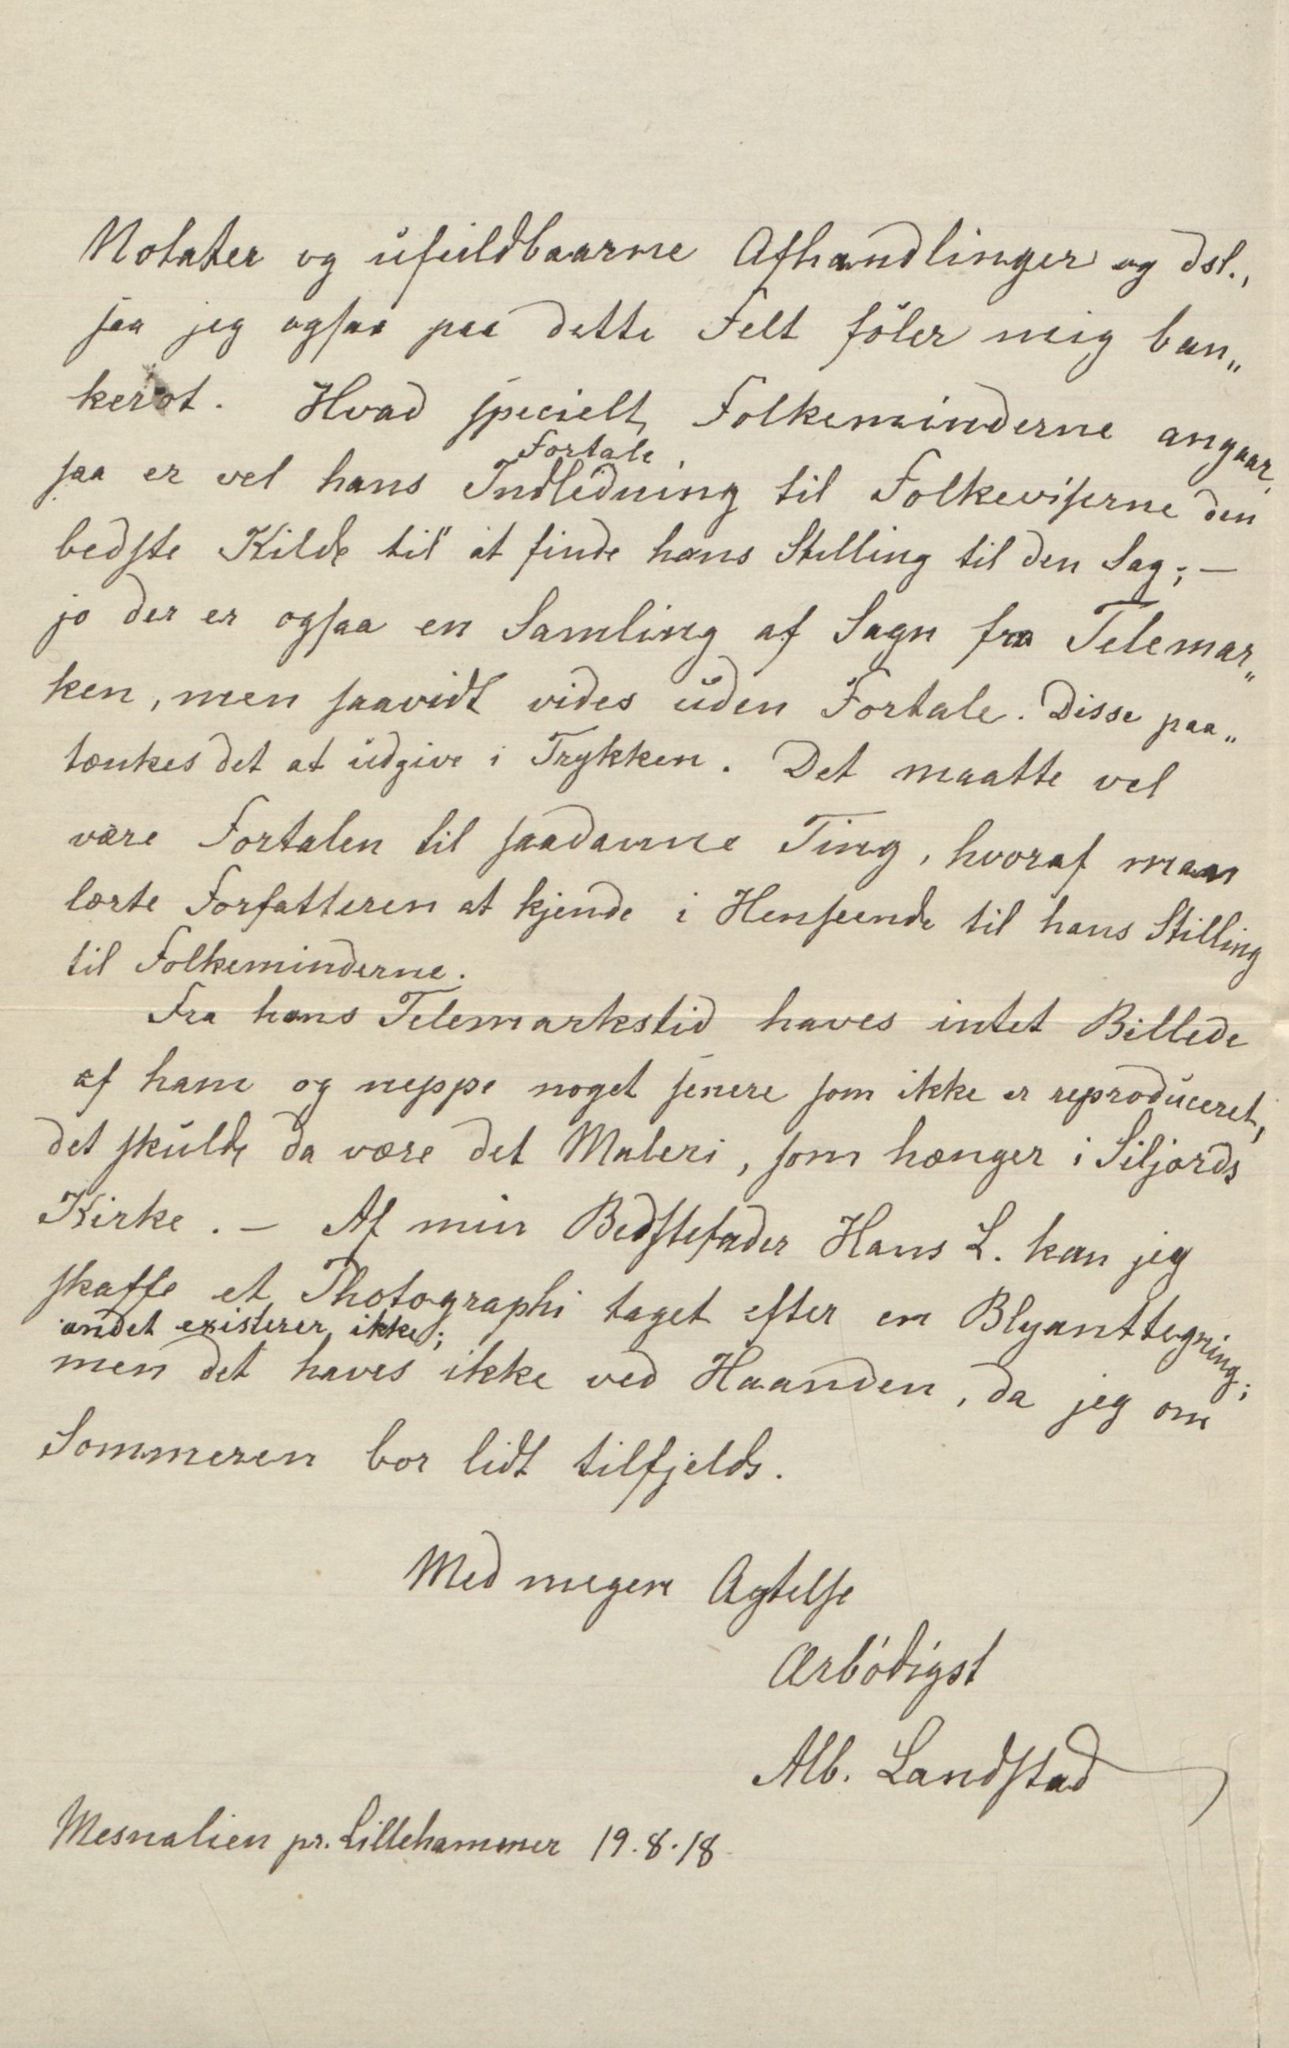 Notater og ufuldbaarne Afhandlinger og dsl.,
saa jeg ogsaa paa dette Felt föler mig ban„
kerot. Hvad specielt Folkeminderne angaar,
Fortale
saa er vel hans Indledning til Folkeviserne den
bedste Kilde til at finde hans Stilling til den Sag; —
jo der er ogsaa en Samling af Sagn fra Telemar„
ken, men saavidt vides uden Fortale. Disse paa„
tænkes det at udgive i Trykken. Det maatte vel
være Fortalen til saadanne Ting, hvoraf man
lærte Forfatteren at kjende i Henseende til hans Stilling
til Folkeminderne.
Fra hans Telemarkstid haves intet Billede
af ham og neppe noget senere som ikke er reproduceret,
det skulde da være det Maleri, som hænger i Siljords
Kirke. — Af min Bedstefader Hans L. kan jeg
skaffe et Photographi taget efter en Blyanttegning;
andet existerer ikke;
men det haves ikke ved Haanden, da jeg om
Sommeren bor lidt tilfjelds.
Med megen Agtelse
Ærbödigst
Alb. Landstad
Mesnalien pr. Lillehammer 19.8.18